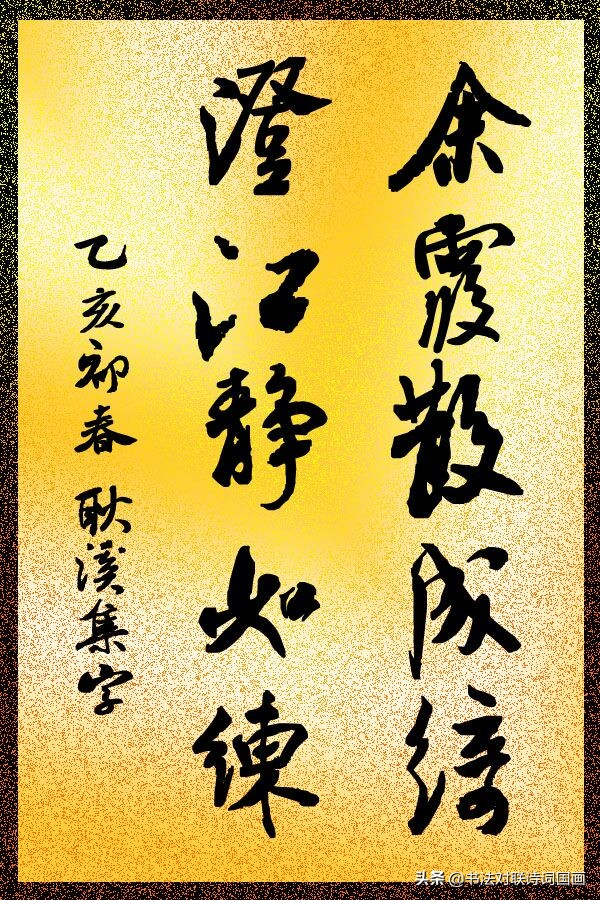 余霞散成绮
澄江静如練
乙亥初春 耿溪集字
头条 @书法对联诗词国画